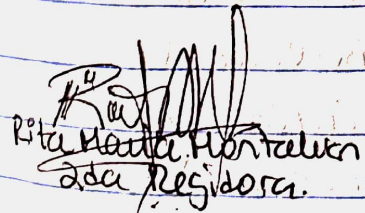 Rita María Montalván
2da Regidora.